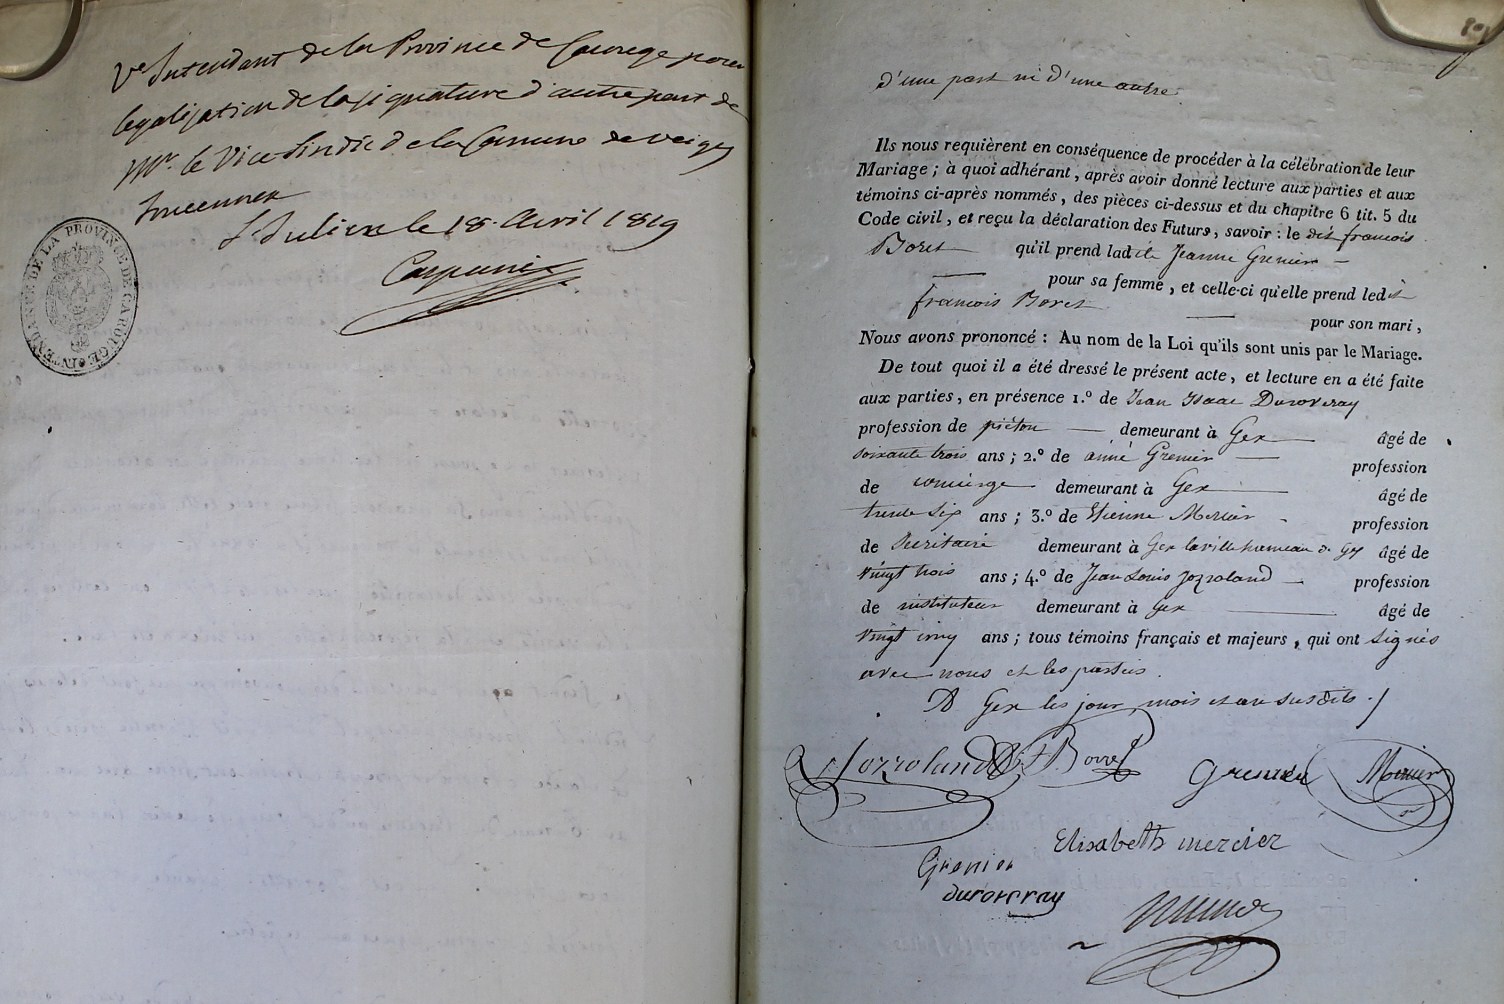 Vu Intendant de la Province de Carouge pour
legalisation de la signature d'autre part de
Mr. le Vice-Sindic de la Comune de Veigy
St. Julien le 18. Avril 1819
INTENDANCE DE LA PROVINCE DE CAROUGE
d'une part ni d'une autre.
Ils nous requièrent en conséquence de procéder à la célébration de leur
Mariage ; à quoi adhérant, après avoir donné lecture aux parties et aux
témoins ci-après nommés, des pièces ci-dessus et du chapitre 6 tit. 5 du
Code civil, et reçu la déclaration des Futurs, savoir : le dit françois
Boret qu'il prend ladite Jeanne Grenier
pour sa femme, et celle-ci qu'elle prend ledit
françois Boret
pour son mari,
Nous avons prononcé : Au nom de la Loi qu'ils sont unis par le Mariage.
De tout quoi il a été dressé le présent acte, et lecture en a été faite
aux parties, en présence 1.º de Jean Isaac Duroveray
profession de piéton demeurant à Gex âgé de
soixante trois ans ; 2.º de aimé Grenier profession
de concierge demeurant à Gex âgé de
trente six ans ; 3.º de Etienne Mercier profession
de demeurant à Gex la ville hameau de Gex âgé de
vingt trois ans ; 4.º de Jean Louis Jozzoland profession
de instituteur demeurant à Gex âgé de
vingt cinq ans ; tous témoins français et majeurs, qui ont signés
avec nous et les parties.
A Gex les jour, mois et an susdits.
Jozzoland F. Borret Grenier Mercier
Elisabeth mercier
Grenier
duroveray